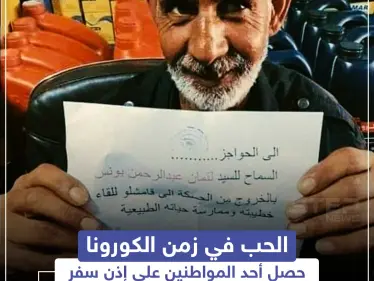 MAR
الى الحواجز ............
السماح للسيد لقمان عبدالرحمن يونس
بالخروج من الحسكة الى قامشلو للقاء
خطيبته وممارسة حياته الطبيعية
STEP
NEWS
الحب في زمن الكورونا
حصل أحد المواطنين على إذن سفر